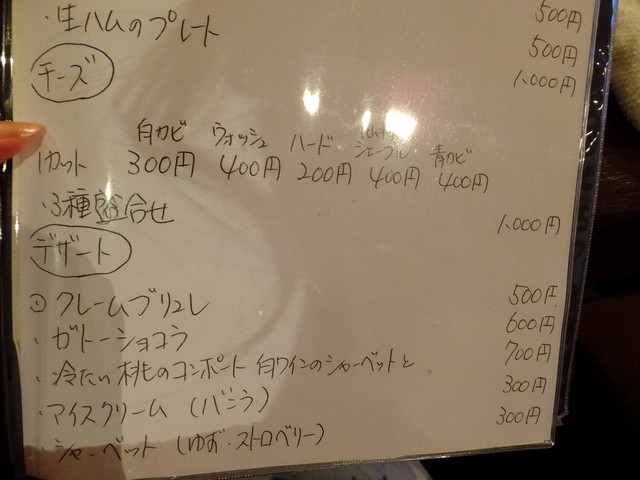 500円
・生ハムのプレート 500円
1,000円
チーズ
白カビ ウォッシュ ハード シェーブル 青カビ
1カット 300円 400円 200円 400円 400円
・3種盛合せ 1,000円
デザート
・クレームブリュレ 500円
・ガトーショコラ 600円
・冷たい桃のコンポート 白ワインのシャーベットと 700円
・アイスクリーム (バニラ) 300円
・シャーベット (ゆず・ストロベリー) 300円